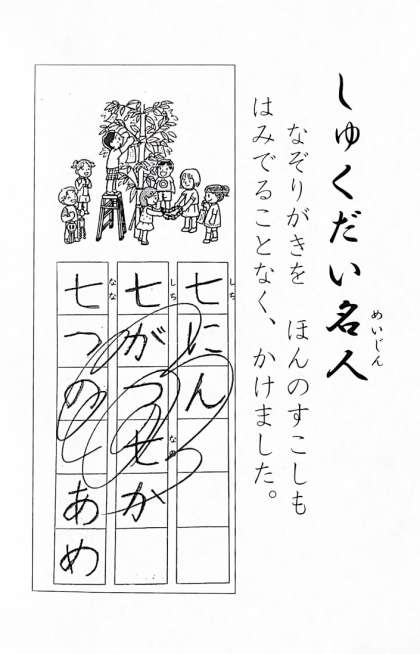 しゅくだい名人
めいじん
なぞりがきを ほんのすこしも
はみでることなく、かけました。
しち
七にん
しち
七がつ七か
なの
なな
七つの
あめ